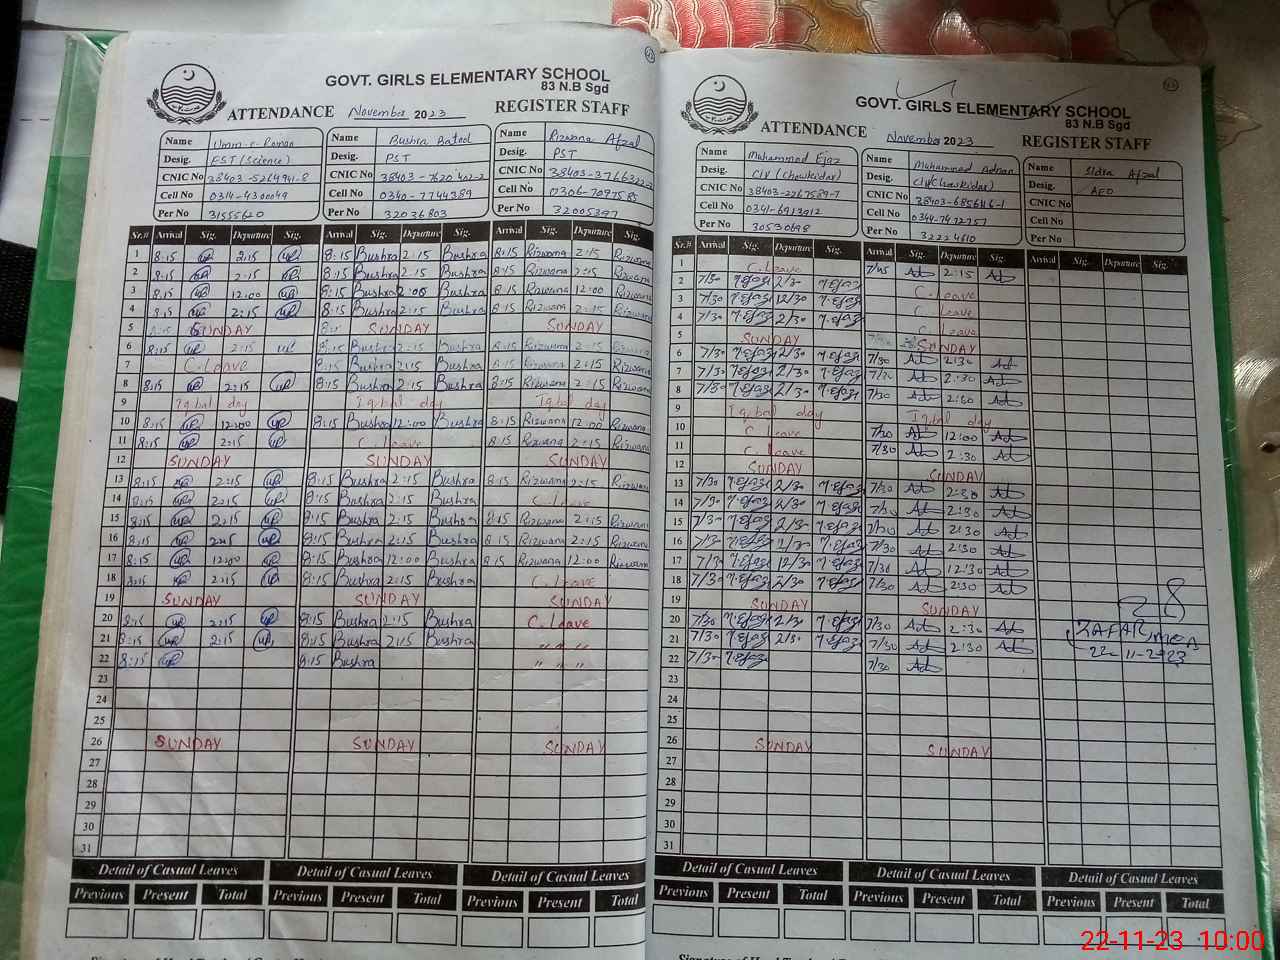 42
GOVT. GIRLS ELEMENTARY SCHOOL
83 N.B Sgd
ATTENDANCE November 2023 REGISTER STAFF
Name Umm-e-Roman
Desig. EST (Science)
CNIC No 38403-5264941-8
Cell No 0314-4300049
Per No 31555620
Name Bushra Batool
Desig. PST
CNIC No 38403-7620402-2
Cell No 0340-7744389
Per No 32036803
Name Rizwana Afzal
Desig. PST
CNIC No
Cell No 0306-7097585
Per No 32005397
Sr.# Arrival Sig. Departure Sig. Arrival Sig. Departure Sig. Arrival Sig. Departure Sig.
1 8:15 2:15 8:15 Bushra 2:15 Bushra 8:15 Rizwana 2:15 Rizwana
2 8:15 2:15 8:15 Bushra 2:15 Bushra 8:15 Rizwana 2:15 Rizwana
3 8:15 12:00 8:15 Bushra 2:00 Bushra 8:15 Rizwana 12:00 Rizwana
4 8:15 2:15 8:15 Bushra 2:15 Bushra 8:15 Rizwana 2:15 Rizwana
5 SUNDAY SUNDAY SUNDAY
6 8:15 2:15 8:15 Bushra 2:15 Bushra 8:15 Rizwana 2:15 Rizwana
7 C.Leave 8:15 Bushra 2:15 Bushra 8:15 Rizwana 2:15 Rizwana
8 8:15 2:15 8:15 Bushra 2:15 Bushra 8:15 Rizwana 2:15 Rizwana
9 Iqbal day Iqbal day Iqbal day
10 8:15 12:00 8:15 Bushra 12:00 Bushra 8:15 Rizwana 12:00 Rizwana
11 8:15 2:15 C.Leave 8:15 Rizwana 2:15 Rizwana
12 SUNDAY SUNDAY SUNDAY
13 8:15 2:15 8:15 Bushra 2:15 Bushra 8:15 Rizwana 2:15 Rizwana
14 8:15 2:15 8:15 Bushra 2:15 Bushra C.Leave
15 8:15 2:15 8:15 Bushra 2:15 Bushra 8:15 Rizwana 2:15 Rizwana
16 8:15 2:15 8:15 Bushra 2:15 Bushra 8:15 Rizwana 2:15 Rizwana
17 8:15 12:00 8:15 Bushra 12:00 Bushra 8:15 Rizwana 12:00 Rizwana
18 8:15 2:15 8:15 Bushra 2:15 Bushra C.Leave
19 SUNDAY SUNDAY SUNDAY
20 8:15 2:15 8:15 Bushra 2:15 Bushra C.Leave
21 8:15 2:15 8:15 Bushra 2:15 Bushra " " "
22 8:15 8:15 Bushra " " "
23
24
25
26 SUNDAY SUNDAY SUNDAY
27
28
29
30
31
Detail of Casual Leaves Detail of Casual Leaves Detail of Casual Leaves
Previous Present Total Previous Present Total Previous Present Total
43
GOVT. GIRLS ELEMENTARY SCHOOL
83 N.B Sgd
ATTENDANCE November 2023 REGISTER STAFF
Name Muhammad Ejaz
Desig. CIV (Chowkidar)
CNIC No 38403-2267589-7
Cell No 0341-6913912
Per No 30530698
Name Muhammad Adnan
Desig. CIV(Chowkidar)
CNIC No
Cell No 0344-7472757
Per No 32224610
Name Sidra Afzal
Desig. AEO
CNIC No
Cell No
Per No
Sr.# Arrival Sig. Departure Sig. Arrival Sig. Departure Sig. Arrival Sig. Departure Sig.
1 C.Leave 7/45 2:15
2 7/30 M.Ejaz 2/30 M.Ejaz C.Leave
3 7/30 M.Ejaz 12/30 M.Ejaz C Leave
4 7/30 M.Ejaz 2/30 M.Ejaz C Leave
5 SUNDAY SUNDAY
6 7/30 M.Ejaz 2/30 M.Ejaz 7/30 2:30
7 7/30 M.Ejaz 2/30 M.Ejaz 7/30 2:30
8 7/30 M.Ejaz 2/30 M.Ejaz 7/30 2:30
9 Iqbal day Iqbal day
10 C.Leave 7/30 12:00
11 C.Leave 7/30 2:30
12 SUNDAY SUNDAY
13 7/30 M.Ejaz 2/30 M.Ejaz 7/30 2:30
14 7/30 M.Ejaz 2/30 M.Ejaz 7/30 2:30
15 7/30 M.Ejaz 2/30 M.Ejaz 7/30 2:30
16 7/30 M.Ejaz 2/30 M.Ejaz 7/30 2:30
17 7/30 M.Ejaz 12/30 M.Ejaz 7/30 12:30
18 7/30 M.Ejaz 2/30 M.Ejaz 7/30 2:30
19 SUNDAY SUNDAY
20 7/30 M.Ejaz 2/30 M.Ejaz 7/30 2:30
21 7/30 M.Ejaz 2/30 M.Ejaz 7/30 2:30
22 7/30 M.Ejaz 7/30
ZAFAR MEA
22-11-2023
23
24
25
26 SUNDAY SUNDAY
27
28
29
30
31
Detail of Casual Leaves Detail of Casual Leaves Detail of Casual Leaves
Previous Present Total Previous Present Total Previous Present Total
22-11-23 10:00